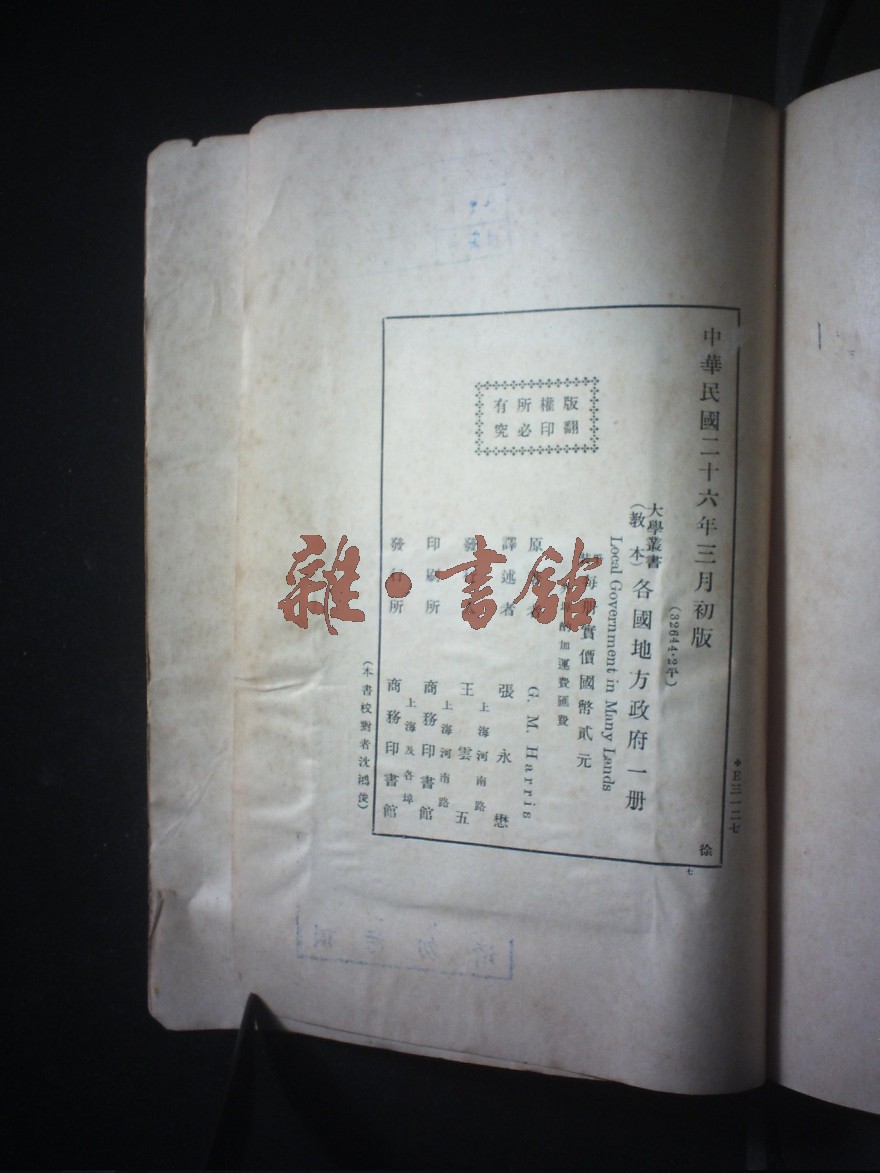 中華民國二十六年三月初版
(32644·2平)
大學叢書
(教本)各國地方政府一册
Local Government in Many Lands
每册實價國幣貳元
加運費匯費
版權所有
翻印必究
原著者 G. M. Harris
譯述者 張永懋
上海河南路
王雲五
印刷所 上海河南路
商務印書館
發行所 上海及各埠
商務印書館
(本書校對者沈鴻俊)
徐
*E三一二七
七
雜·書館